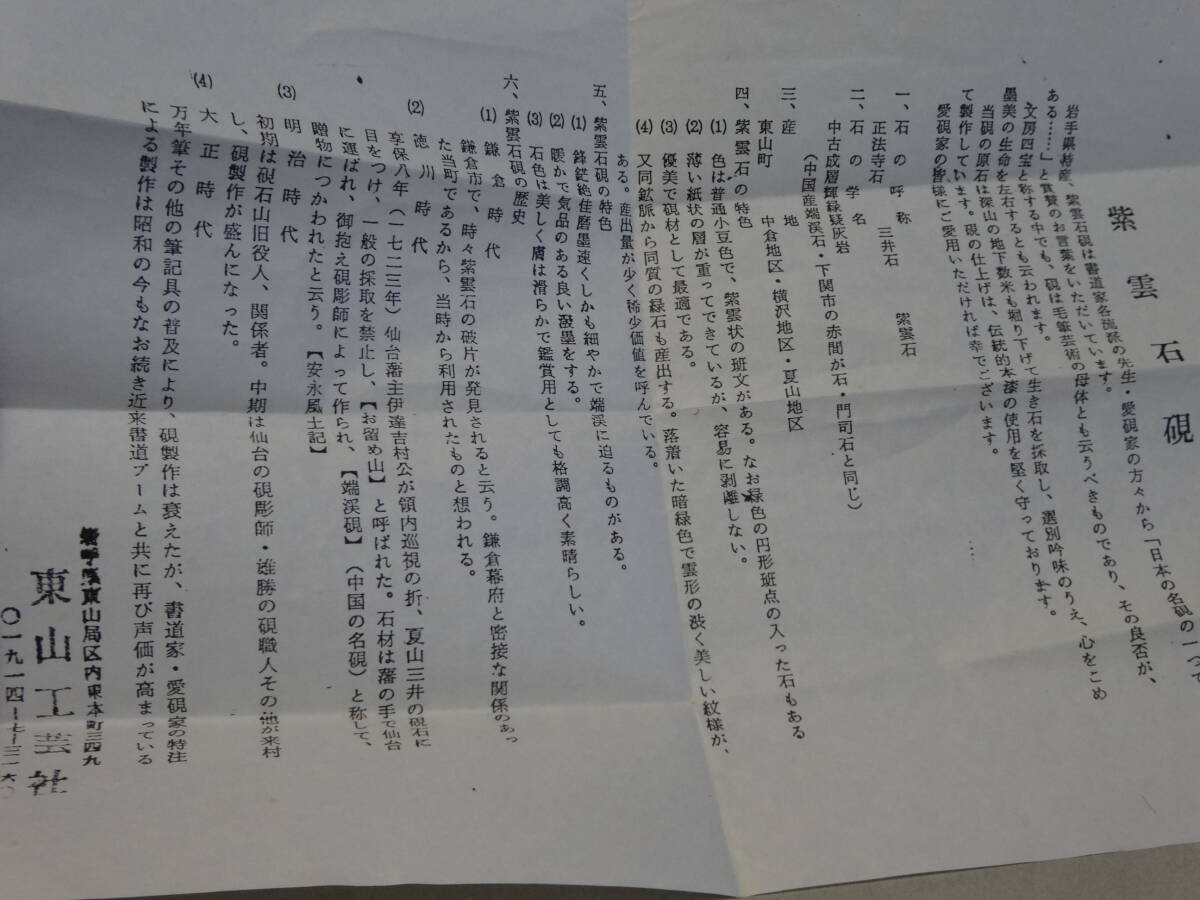 紫雲石硯
岩手県特産、紫雲石硯は書道家各流派の先生・愛硯家の方々から「日本の名硯の一つで
ある……」と賞賛のお言葉をいただいています。
文房四宝と称する中でも、硯は毛筆芸術の母体とも云うべきものであり、その良否が、
墨美の生命を左右するとも云われます。
当硯の原石は深山の地下数米も堀り下げて生き石を採取し、選別吟味のうえ、心をこめ
て製作しています。硯の仕上げは、伝統的本漆の使用を堅く守っております。
愛硯家の皆様にご愛用いただければ幸でございます。
一、石の呼称
正法寺石 三井石 紫雲石
二、石の学名
中古成層輝緑疑灰岩
(中国産端渓石・下関市の赤間が石・門司石と同じ)
三、産地
東山町 中倉地区・横沢地区・夏山地区
四、紫雲石の特色
(1) 色は普通小豆色で、紫雲状の班文がある。なお緑色の円形班点の入った石もある
(2) 薄い紙状の層が重ってできているが、容易に剥離しない。
(3) 優美で硯材として最適である。
(4) 又同鉱脈から同質の緑石も産出する。落着いた暗緑色で雲形の渋く美しい紋様が、
ある。産出量が少く稀少価値を呼んでいる。
五、紫雲石硯の特色
(1) 鋒鋩絶佳磨墨速くしかも細やかで端渓に迫るものがある。
(2) 暖かで気品のある良い溌墨をする。
(3) 石色は美しく膚は滑らかで鑑賞用としても格調高く素晴らしい。
六、紫雲石硯の歴史
(1) 鎌倉時代
鎌倉市で、時々紫雲石の破片が発見されると云う。鎌倉幕府と密接な関係のあっ
た当町であるから、当時から利用されたものと想われる。
(2) 徳川時代
享保八年(一七二三年)仙台藩主伊達吉村公が領内巡視の折、夏山三井の硯石に
目をつけ、一般の採取を禁止し、【お留め山】と呼ばれた。石材は藩の手で仙台
に運ばれ、御抱え硯彫師によって作られ、【端渓硯】(中国の名硯)と称して、
贈物につかわれたと云う。【安永風土記】
(3) 明治時代
初期は硯石山旧役人、関係者。中期は仙台の硯彫師・雄勝の硯職人その他が来村
し、硯製作が盛んになった。
(4) 大正時代
万年筆その他の筆記具の普及により、硯製作は衰えたが、書道家・愛硯家の特注
による製作は昭和の今もなお続き近来書道ブームと共に再び声価が高まっている
岩手県東山局区内東本町三四九
東山工芸社
〇一九一四-七-三一六